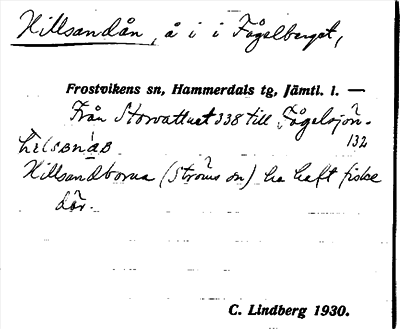 Hillsandån, å i i Fågelberget,
Frostvikens sn, Hammerdals tg, Jämtl. l. —
Från Storvattnet 338 till Fågelsjön.
132
hɩlsanåɴ
Hillsandborna (Ströms sn) ha haft fiske
där.
C. Lindberg 1930.